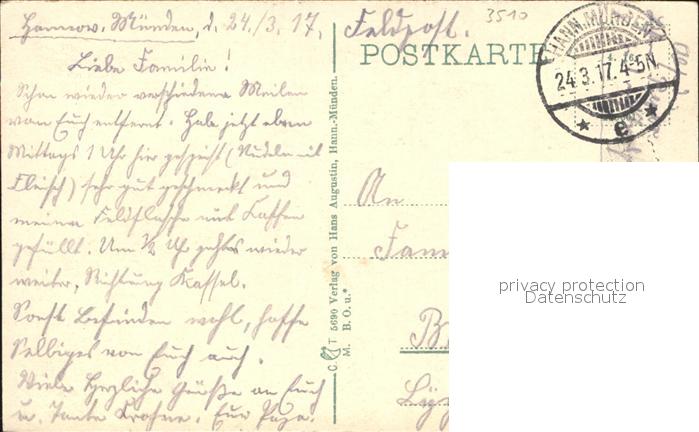 Hannov. Münden, d. 24./3. 17.
Liebe Familie!
Schon wieder verschiedene Meilen
von Euch entfernt. Habe jetzt eben
Mittags 1 Uhr hier gespeist (Nudeln mit
Fleisch) sehr gut geschmeckt und
meine Feldflasche mit Kaffee
gefüllt. Um ½ Uhr gehts wieder
weiter, Richtung Kassel.
Sonst Befinden wohl, hoffe
Selbiges von Euch auch.
Viele Herzliche Grüße an Euch
u. Tante Euer
C. T 5690 Verlag von Hans Augustin, Hann.-Münden.
M. B. O. u.*
Feldpost.
3510
POSTKARTE
HANN. MÜNDEN
24.3.17.4-5N
* e *
An
Fam
B
privacy protection
Datenschutz